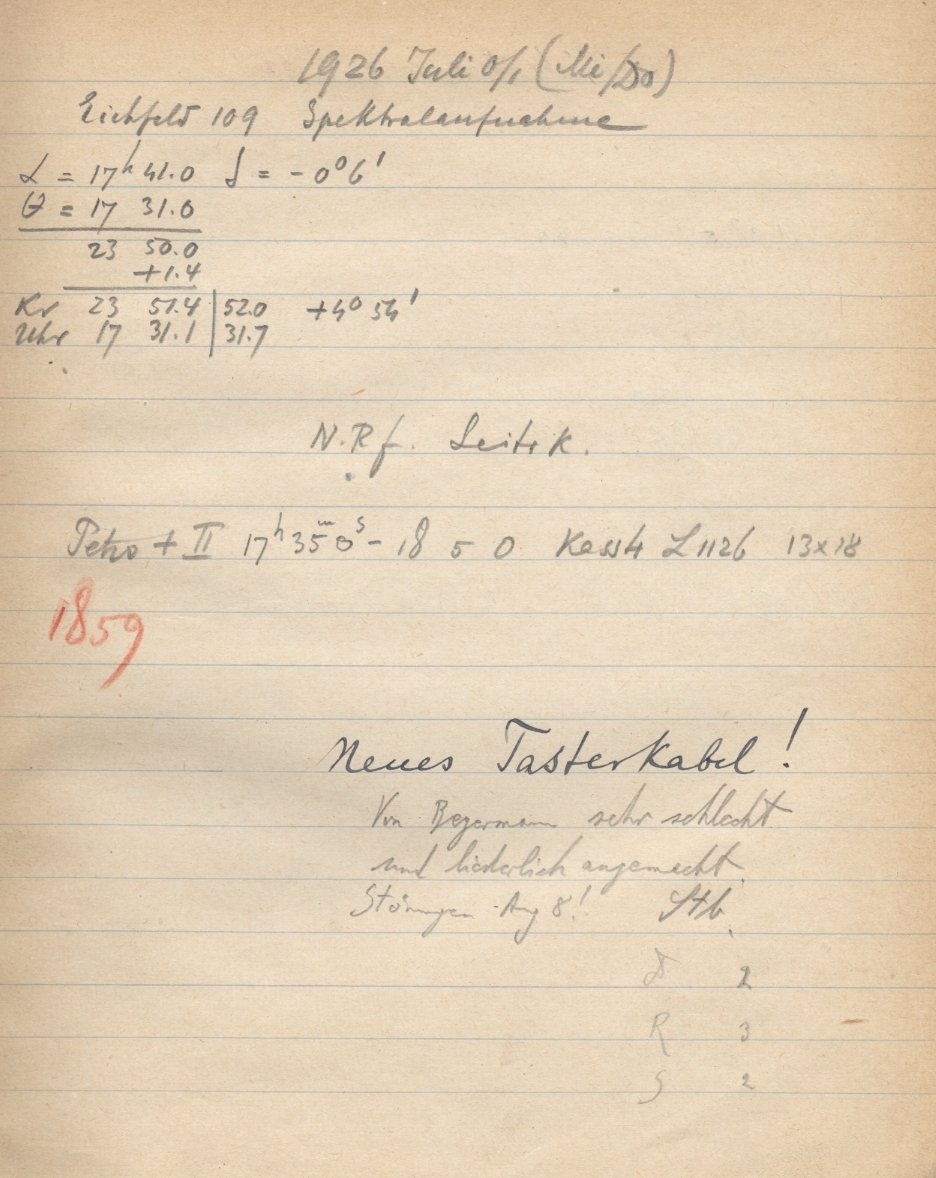 1926 Juli 0/1 (Mi/Do)
Eichfeld 109 Spektralaufnahme
α = 17h 41.0 δ = - 0° 6'
θ = 17 31.0
23 50.0
+1.4
Kr 23 51.4 | 52.0 +4° 54'
Uhr 17 31.1 | 31.7
N.Rf. Leitrk.
Petro + II 17h 35m 0s - 18 5 0 Kass4 L 1126 13x18
1859
Neues Tasterkabel!
Von Begermann sehr schlecht
und liederlich angemacht.
Störungen Aug 8! Stb.
D 2
R 3
S 2